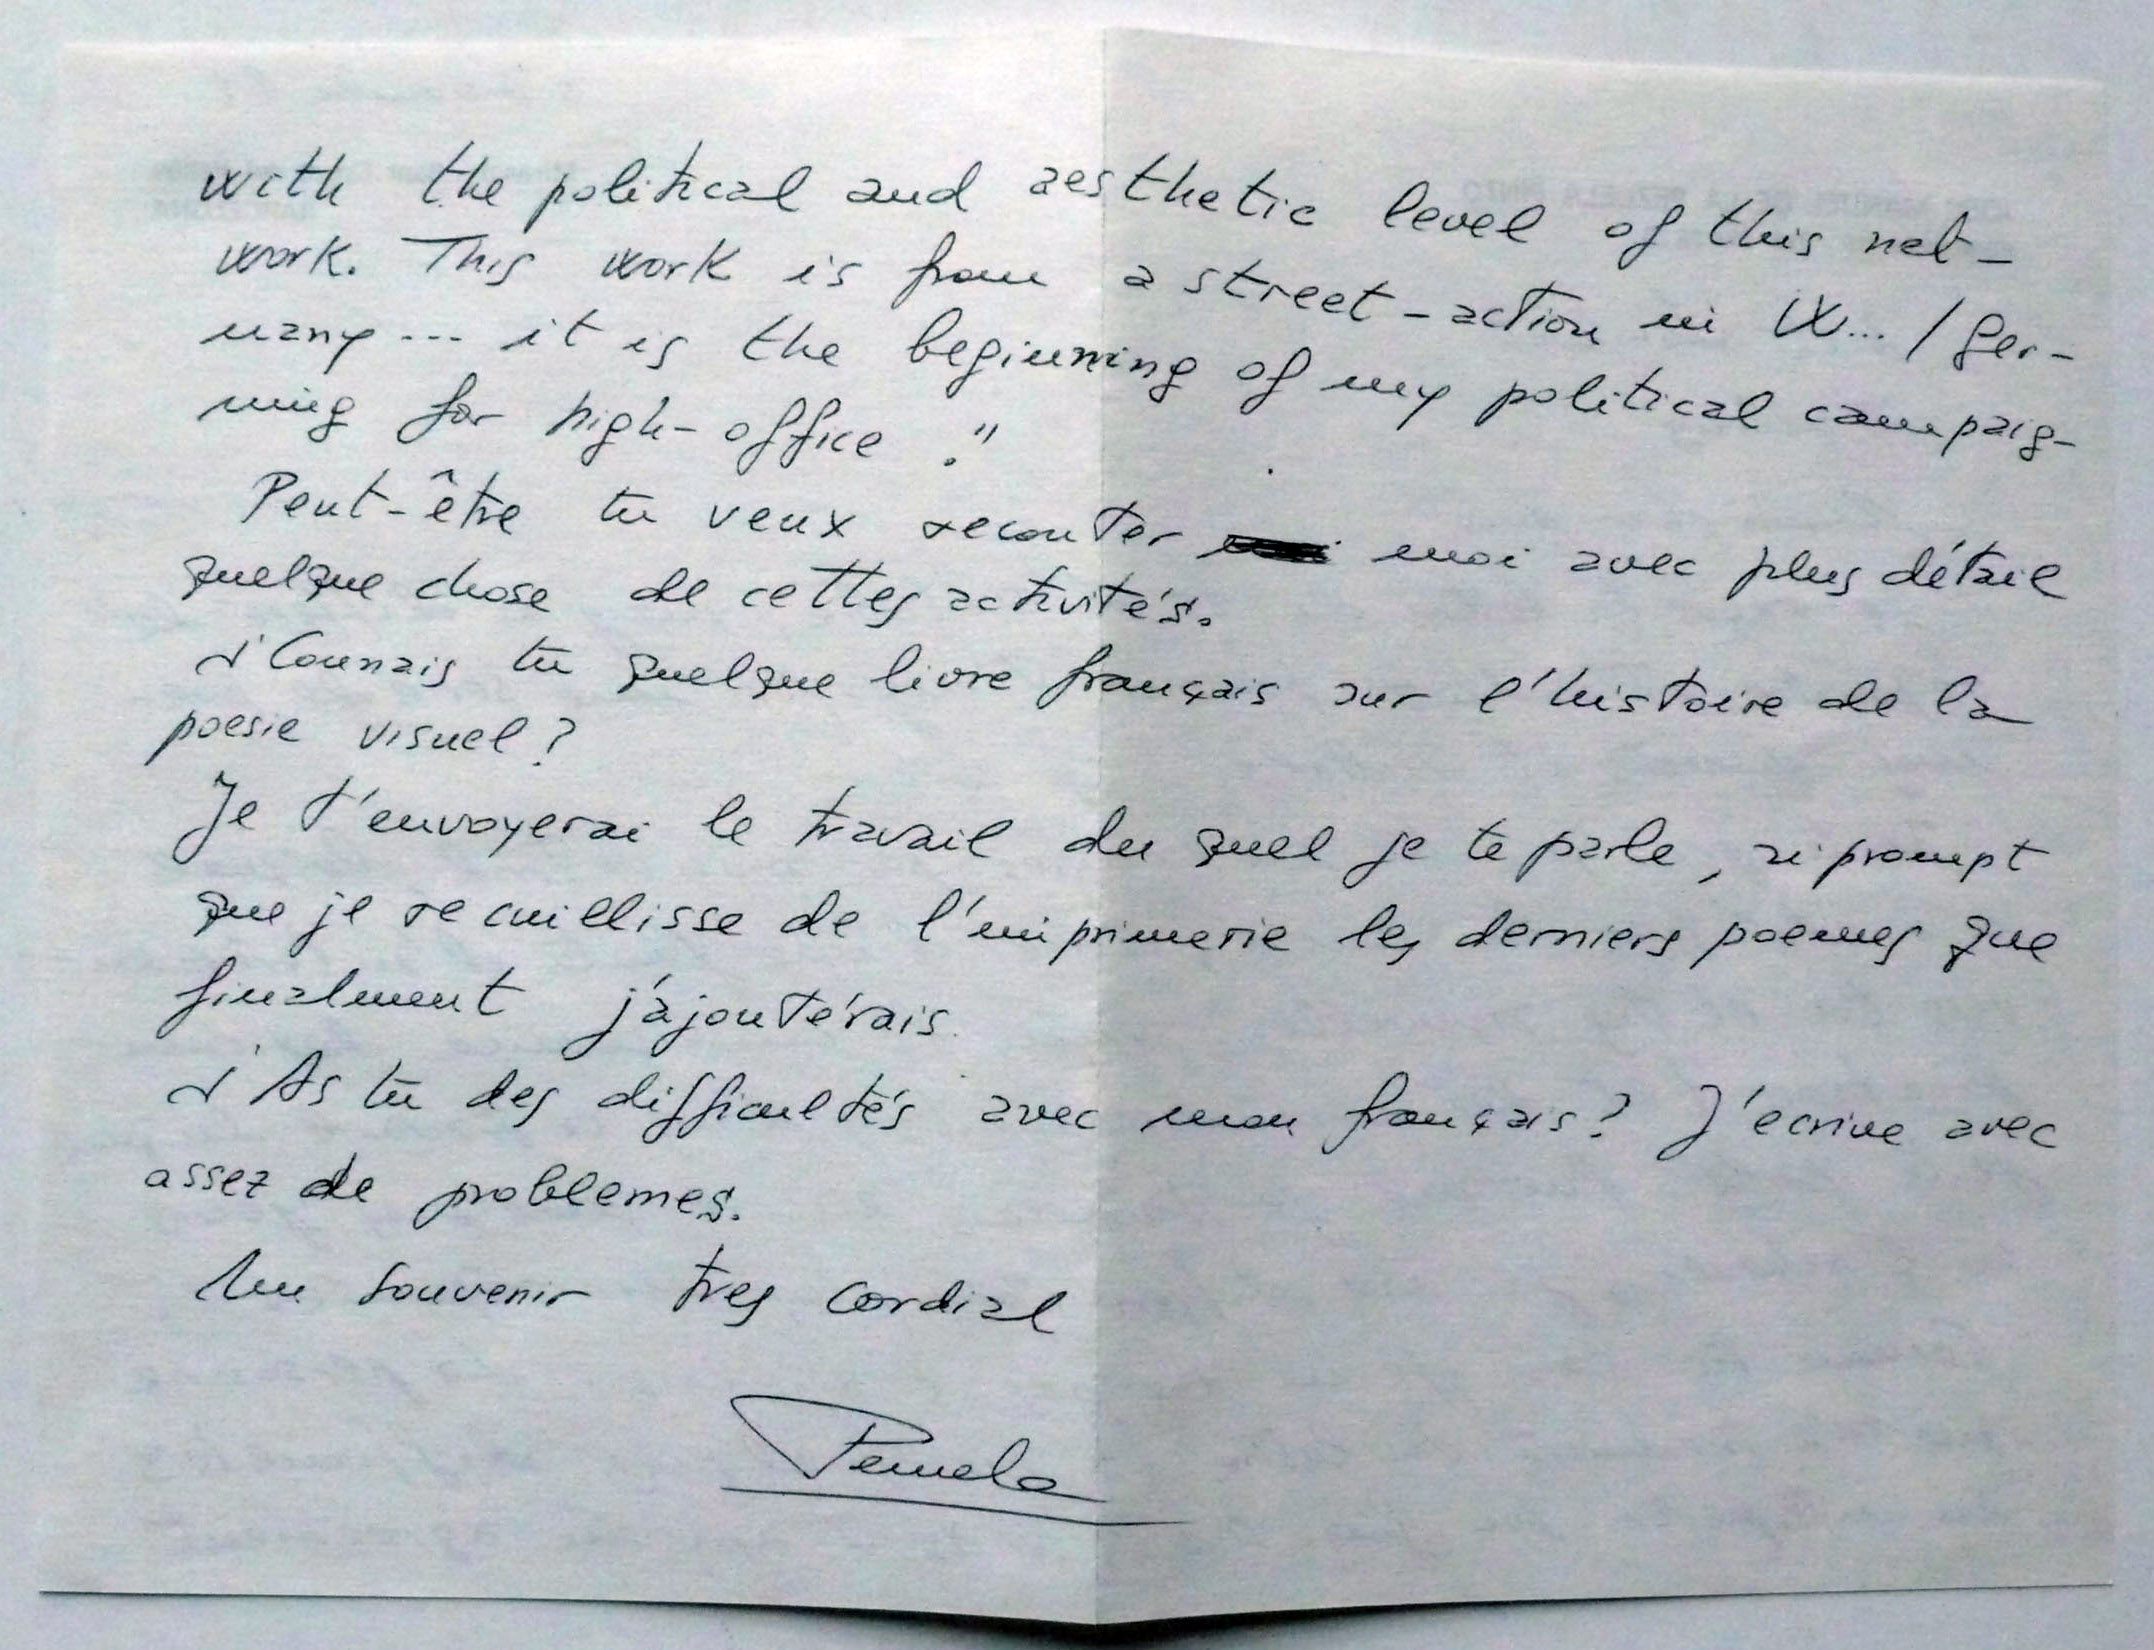 with the political and aesthetic level of this net-
work. This work is from a street-action in W... / Ger-
many --- it is the beginning of my political campaig-
ning for high-office."
Peut-être tu veux reconter moi avec plus détail
quelque chose de cettes activités.
¿Connais tu quelque livre français sur l'histoire de la
poesie visuel?
Je t'envoyerai le travail du quel je te parle, si prompt
que je recuillisse de l'imprimerie les derniers poemes que
finalment j'ajoutérais.
¿As tu des difficultés avec mon français? J'ecrive avec
assez de problemes.
Un souvenir tres cordial